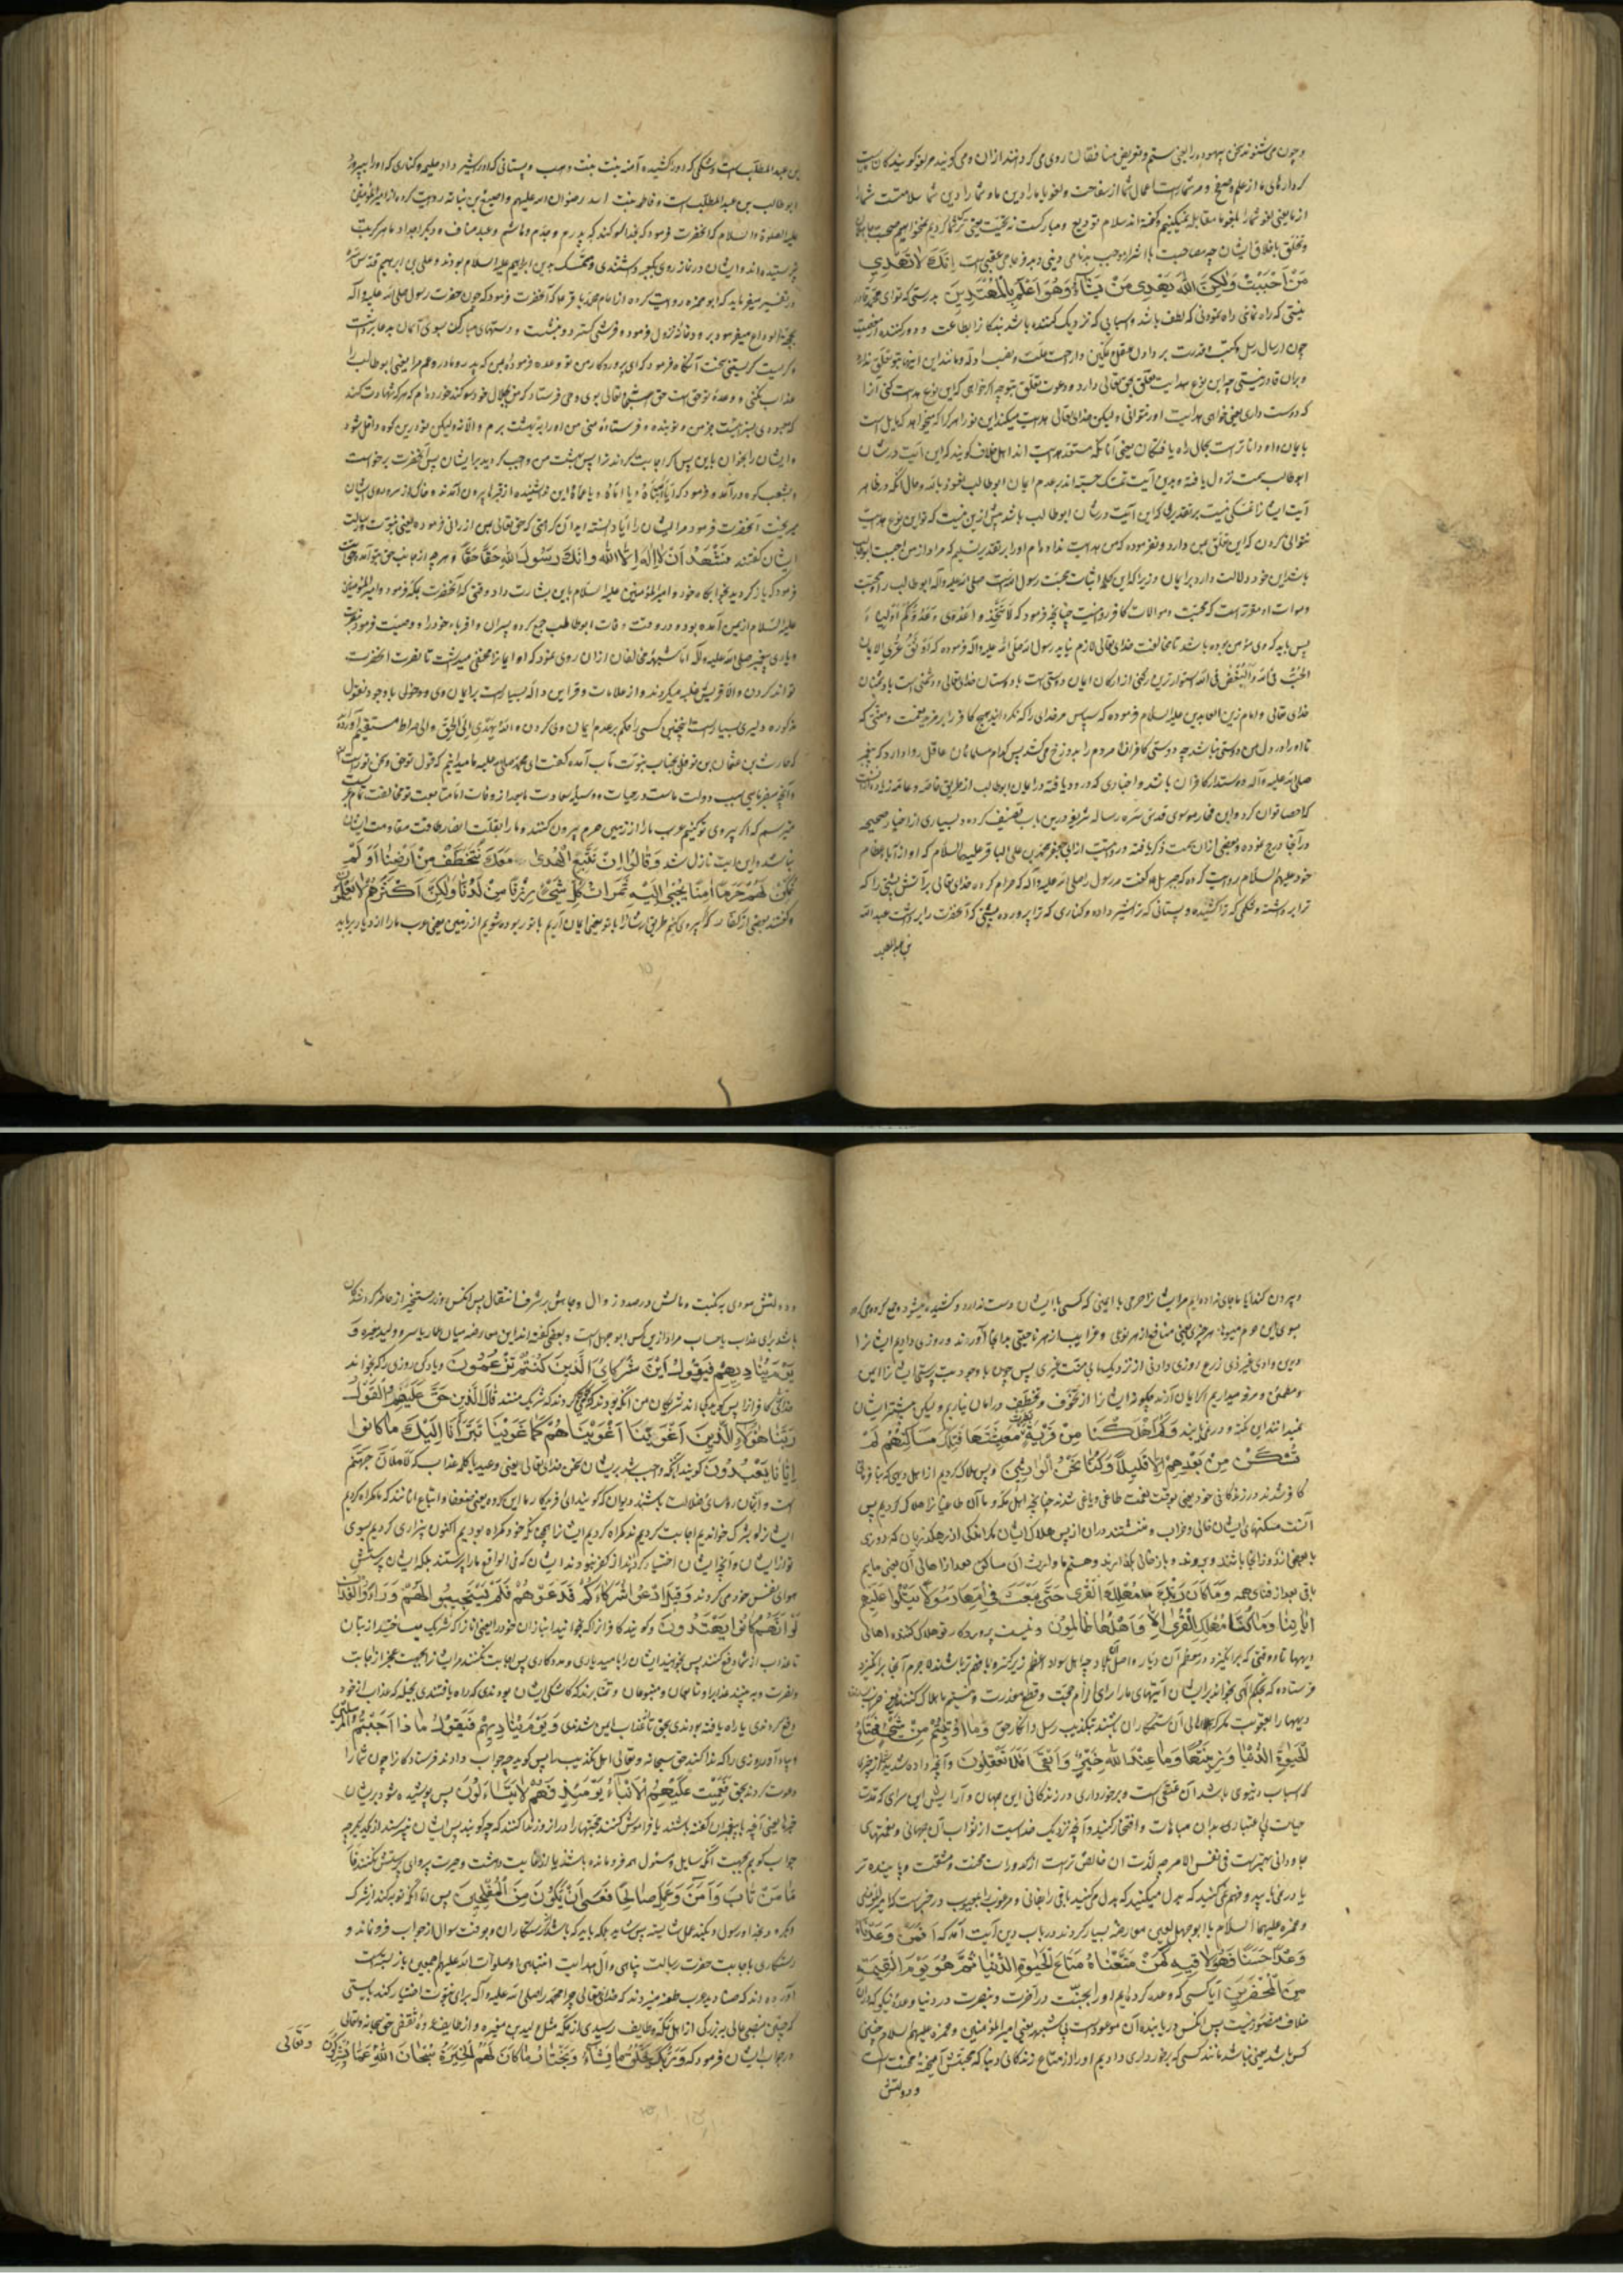 و چون می شنوند سخن بیهوده را یعنی ستم و تعریض منافقان روی می گردانند ازان و می گویند مر لغو گویندگان
کردارهای ما از حلم و صفح و مر شماراست اعمال شما از سفاهت و لغو یا ما را دین ما و شما را دین شما سلامتست شما
از ما یعنی لغو شما را بلغو ما مقابله نمیکنیم و گفته اند سلام تودیع و مبارکست نه تحیت یعنی ترک شما کردیم نمیخواهیم صحبت جاهلان
و تخلق باخلاق ایشان چه مصاحبت با اشرار موجب بدنامی دینی و بدفرجامی عقبی است اِنَّكَ لَا تَهْدِی
مَنْ اَحْبَبْتَ وَلٰكِنَّ اللّٰهَ یَهْدِی مَنْ یَشَآءُ وَهُوَ اَعْلَمُ بِالْمُهْتَدِینَ بدرستی که تو ای محمد قادر
نیستی که راه نمائی راه نمودنی که لطف باشد و اسبابی که نزدیک کننده باشد بندگانرا بطاعت و دور کننده از معصیت
چون ارسال رسل و کتب و قدرت بر
و بران قادر نیستی چه این نوع هدایت تعلق بحق تعالی دارد و دعوت تعلق بتو چه اگر خواهی که این نوع هدایت کنی آنرا
که دوست داری یعنی خواهی هدایت او نتوانی ولیکن خدای تعالی هدایت میکند باین نوع هر کرا که میخواهد که مایل است
بایمان و او داناترست بحال راه یافتگان یعنی آنانکه مستعد هدایت اند اهل خلاف گویند که این آیت در شان
ابوطالب سمت نزول یافته و بدین آیت تمسک جسته اند بر عدم ایمان ابوطالب نعوذ بالله و حال آنکه در ظاهر
آیت ایشانرا تمسکی نیست بر تقدیری که این آیت در شان ابوطالب باشد بیش ازین نیست که تو این نوع هدایت
نتوانی کردن که این تعلق بمن دارد و نفرموده که من هدایت نداده ام او را بر تقدیر تسلیم که مراد از من احببت ابوطالب
باشد این خود دلالت دارد بر ایمان او زیرا که این کلمه اثبات محبت رسول الله است صلی الله علیه وآله ابوطالب را و محبت
و موالات او مقررست که محبت و موالات کافر روا نیست چنانچه فرمود که لَا تَتَّخِذُوا عَدُوِّی وَعَدُوَّكُمْ اَوْلِیَآءَ
پس باید که وی مؤمن بوده باشد تا مخالفت خدای تعالی لازم نیاید رسول الله صلی الله علیه وآله فرموده که اَوْثَقُ عُرَی الْاِیمَانِ
اَلْحُبُّ فِی اللهِ وَالْبُغْضُ فِی اللهِ استوارترین رکنی از ارکان ایمان دوستی است با دوستان خدای تعالی و دشمنی است با دشمنان
خدای تعالی و امام زین العابدین علیه السلام فرموده که سپاس مر خدای را که نگردانید هیچ کافر را بر من نعمت و منتی که
تا او را در دل من دوستی نباشد چه دوستی کافران مردم را بدوزخ می کشد پس کدام مسلمان عاقل روا دارد که پیغمبر
صلی الله علیه وآله دوستدار کافران باشد و اخباری که ورود یافته در ایمان ابوطالب از طریق خاصه و عامه زیاده از انست
که احصا توان کرد و ابن فخار موسوی قدس سره رساله شریفه درین باب تصنیف کرده و بسیاری از اخبار صحیحه
در آنجا درج نموده و بعضی ازان سمت ذکر یافته و روایتست از ابی جعفر محمد بن علی الباقر علیه السلام که او از آبای عظام
خود علیهم السلام روایت کرده که جبرئیل گفت مر رسول را صلی الله علیه وآله که حرام کرده خدای تعالی بر آتش پشتی را که
ترا برداشته و شکمی که ترا کشیده و پستانی که ترا شیر داده و کناری که ترا پرورده پشتی که آنحضرت را برداشت عبدالله
بن عبدالمطلب
بن عبدالمطلب است و شکمی که او را کشیده آمنه بنت وهب و پستانی که او را شیر داد حلیمه و کناری که او را پرورد
ابوطالب بن عبدالمطلب است و فاطمه بنت اسد رضوان الله علیهم و اصبغ بن نباته روایت کرده از امیر المؤمنین
علیه الصلوة والسلام که آنحضرت فرمود که بخدا سوگند که پدرم و جدم و هاشم و عبد مناف و دیگر اجداد ما هرگز بت
نپرستیده اند و ایشان در نماز روی بکعبه داشتندی و متمسک بدین ابراهیم علیه السلام بودند و علی بن ابراهیم قدس سره
در تفسیر میفرماید که ابوحمزه روایت کرده از امام محمد باقر ع که آنحضرت فرمود که چون حضرت رسول صلی الله علیه وآله
بحجة الوداع میفرمود بر در خانه نزول فرمود و فرشی گسترد و بنشست و دستهای مبارک سوی آسمان بدعا برداشت
و گریست گریستنی سخت آنگاه فرمود که ای پروردگار من تو وعده فرموده بمن که پدر و مادر و عم مرا یعنی ابوطالب را
عذاب نکنی و وعده تو حق است حق سبحانه تعالی بوی وحی فرستاد که من بجلال خود سوگند خورده ام که هر که شهادت نکند
که معبودی بسزا نیست بجز من و تو بنده و فرستاده منی من او را به بهشت برم والا نه ولیکن تو درین کوه داخل شو
و ایشان را بخوان باین پس اگر اجابت کردند ترا پس بهشت من واجب گردید بر ایشان پس آنحضرت برخواست
و بشعب کوه درآمد و فرمود که یا ابتاه و یا اماه و یا عماه این سه خوابیده از قبرها بیرون آمدند و خاک از سر و روی ایشان
میریخت آنحضرت فرمود مر ایشان را آیا دانسته اید آن کرامتی که حق تعالی بمن ارزانی فرموده یعنی نبوت و رسالت
ایشان گفتند نَشْهَدُ اَنْ لَا اِلٰهَ اِلَّا اللّٰهُ وَاَنَّكَ رَسُولُ اللّٰهِ حَقًّا حَقًّا و هر چه از جانب حق بتو آمده حق است
فرمود که باز گردید بخوابگاه خود و امیر المؤمنین علیه السلام باین بشارت داد وقتی که آنحضرت بمکه فرمود و امیر المؤمنین
علیه السلام از یمن آمده بود و در وقت وفات ابوطالب جمع کرده پسران و اقرباء خود را و وصیت فرموده
و یاری پیغمبر صلی الله علیه وآله اما شبهه مخالفان ازان روی نمود که او ایمانرا مخفی میداشت تا نصرت آنحضرت
تواند کردن والا قریش غلبه میکردند و از علامات و قراین داله بسیارست بر ایمان وی و دخول
مذکوره دلیری بسیارست اینچنین کسی را حکم بر عدم ایمان وی کردن والله یهدی الی الحق والی صراط مستقیم آورده
که حارث بن عثمان بن نوفل بجناب نبوت مآب آمده گفت ای محمد صلی الله علیه ما میدانیم که قول تو حق و سخن تو راست
و آنچه میفرمائی سبب دولت ماست در حیات و وسیله سعادت ما بعد از وفات اما متابعت تو مخالفت تمام
میترسیم که اگر پیروی تو کنیم عرب ما را از زمین حرم بیرون کنند و ما را بعلت انصار طاقت مقاومت ایشان
نباشد این آیت نازل شد وَقَالُوا اِنْ نَتَّبِعِ الْهُدٰی مَعَكَ نُتَخَطَّفْ مِنْ اَرْضِنَا اَوَلَمْ
نُمَكِّنْ لَهُمْ حَرَمًا اٰمِنًا یُجْبٰی اِلَیْهِ ثَمَرَاتُ كُلِّ شَیْءٍ رِزْقًا مِنْ لَدُنَّا وَلٰكِنَّ اَكْثَرَهُمْ لَا یَعْلَمُونَ
و گفتند بعضی از کفار که اگر پیروی کنیم طریق راست را با تو یعنی ایمان آریم با تو ربوده شویم از زمین یعنی عرب ما را از دیار برباید
و بیرون کند آیا ما جای نداده ایم مر ایشانرا حرمی با ایمنی که کسی را با ایشان دست ندارد و کشیده میشود و جمع کرده می گردد
بسوی این حرم میوها هر چیزی یعنی منافع از هر نوعی و غرایب از هر ناحیتی بدانجا آورند و روزی دادیم ایشانرا
درین وادی غیر ذی زرع روزی دادنی از نزدیک ما بی منت غیری پس چون با وجود بت پرستی ایشانرا ایمن
و مطمئن و مرفه میداریم اگر ایمان آرند چگونه ایشانرا از تخوف و تخطف در امان نیاریم ولیکن بیشتر ایشان
نمیدانند این نکته و در نمی یابند وَكَمْ اَهْلَكْنَا مِنْ قَرْیَةٍ بَطِرَتْ مَعِیشَتَهَا فَتِلْكَ مَسَاكِنُهُمْ لَمْ
تُسْكَنْ مِنْ بَعْدِهِمْ اِلَّا قَلِیلًا وَكُنَّا نَحْنُ الْوَارِثِینَ و بس هلاک کردیم از اهل دیهی که
کافر شدند در زندگانی خود یعنی بوقت نعمت طاغی و یاغی شدند چنانچه اهل مکه و ما آن طاغیانرا هلاک کردیم پس
آنست مسکنهای ایشان خالی و خراب و ننشستند دران از پس هلاک ایشان مگر اندکی از رهگذریان که دوری
یا بعضی از روز آنجا باشند و بروند و باز خالی بگذارند و هستیم ما وارث آن مساکن بعد از اهالی آن یعنی مائیم
باقی بعد از فنای همه وَمَا كَانَ رَبُّكَ مُهْلِكَ الْقُرٰی حَتّٰی یَبْعَثَ فِی اُمِّهَا رَسُولًا یَتْلُوا عَلَیْهِمْ
اٰیَاتِنَا وَمَا كُنَّا مُهْلِكِی الْقُرٰی اِلَّا وَاَهْلُهَا ظَالِمُونَ و نیست پروردگار تو هلاک کننده اهالی
دیهها تا وقتی که برانگیزد در معظم آن دیار
فرستاده که بحکم الهی بخواند بر ایشان آیتهای ما را برای الزام حجت و قطع معذرت و نیستیم ما هلاک کننده
دیهها را بعقوبت مگر که اهالی آن ستمکاران باشند بتکذیب رسل و انکار حق وَمَا اُوتِیتُمْ مِنْ شَیْءٍ فَمَتَاعُ
الْحَیٰوةِ الدُّنْیَا وَزِینَتُهَا وَمَا عِنْدَ اللّٰهِ خَیْرٌ وَاَبْقٰی اَفَلَا تَعْقِلُونَ و آنچه داده شدید از چیزی
که اسباب دنیوی باشد آن متمتعی است و برخورداری در زندگانی این جهان و آرایش این سرای که مدت
حیات بی اعتباری بدان مباهات و افتخار کنید و آنچه نزدیک خداست از ثواب آن جهانی و نعمتهای
جاودانی بهترست فی نفس الامر چه لذت آن خالص ترست از کدورات محنت و مشقت و پاینده تر
یا در نمی یابید و فهم نمی کنید که بدل میکنید
و حمزه علیهما السلام با ابوجهل لعین معارضه بسیار کردند در باب دین آیت آمد که اَفَمَنْ وَعَدْنَاهُ
وَعْدًا حَسَنًا فَهُوَ لَاقِیهِ كَمَنْ مَتَّعْنَاهُ مَتَاعَ الْحَیٰوةِ الدُّنْیَا ثُمَّ هُوَ یَوْمَ الْقِیٰمَةِ
مِنَ الْمُحْضَرِینَ آیا کسی که وعده کرده ایم او را بجنت در آخرت و بنصرت در دنیا وعده نیکو که دران
خلاف متصور نیست پس آنکس دریابنده آن موعودست بی شبهه یعنی امیر المؤمنین و حمزه علیهم السلام چنین
کس باشد یعنی نباشد مانند کسی که برخورداری دادیم او را از متاع زندگانی دنیا که محبتش آمیخته محنت است
و دولتش
و دولتش مودی به نکبت و مالش در صدد زوال و جاهش بر شرف انتقال پس آنکس روز رستخیز از حاضر کردگان
باشد برای عذاب یا حساب مراد ازین کس ابوجهل است و بعضی گفته اند این معارضه میان عمار یاسر و ولید مغیره و
یَوْمَ یُنَادِیهِمْ فَیَقُولُ اَیْنَ شُرَكَائِیَ الَّذِینَ كُنْتُمْ تَزْعُمُونَ و یاد کن روزی را که بخواند
خدایتعالی کافرانرا پس گوید کجا اند شریکان من آنکه بودند که گمان می کردند که شریک منند قَالَ الَّذِینَ حَقَّ عَلَیْهِمُ الْقَوْلُ
رَبَّنَا هٰؤُلَاءِ الَّذِینَ اَغْوَیْنَا اَغْوَیْنَاهُمْ كَمَا غَوَیْنَا تَبَرَّاْنَا اِلَیْكَ مَا كَانُوا
اِیَّانَا یَعْبُدُونَ گویند آنانکه واجب شد بر ایشان سخن خدای تعالی یعنی وعید یا کلمه عذاب که لَاَمْلَاَنَّ جَهَنَّمَ
است و آنان رؤسای ضلالت باشند و دیوان که گویند ای آفریدگار ما این گروه یعنی ضعفا و اتباع آنانند که گمراه کردیم
ایشانرا و بشرک خواندیم اجابت کردند گمراه کردیم ایشانرا همچنانکه خود گمراه بودیم اکنون بیزاری کردیم بسوی
تو از ایشان و آنچه ایشان اختیار کردند از کفر نبودند ایشان که فی الواقع ما را پرستند بلکه ایشان پرستش
هوای نفس خود می کردند وَقِیلَ ادْعُوا شُرَكَاءَكُمْ فَدَعَوْهُمْ فَلَمْ یَسْتَجِیبُوا لَهُمْ وَرَاَوُا الْعَذَابَ
لَوْ اَنَّهُمْ كَانُوا یَهْتَدُونَ و گویند کافرانرا که بخوانید انبازان خود را یعنی آنانرا که شریک میساختید از بتان
تا عذاب از شما دفع کنند پس بخوانند ایشان را بامید یاری و مددکاری پس اجابت نکنند مر ایشانرا بجهت عجز از اجابت
و نصرت و به بینند عذاب را و تابعان و متبوعان و تمنا برند که کاشکی ایشان بودندی که راه یافتندی بحیله که عذاب از خود
دفع کردندی یا راه یافته بودندی بحق تا از عذاب ایمن شدندی وَیَوْمَ یُنَادِیهِمْ فَیَقُولُ مَاذَا اَجَبْتُمُ الْمُرْسَلِینَ
و یاد آور روزی را که ندا کند حق سبحانه و تعالی اهل تکذیب را پس گوید چه جواب دادند فرستادگانرا چون شما را
دعوت کردند بحق فَعَمِیَتْ عَلَیْهِمُ الْاَنْبَاءُ یَوْمَئِذٍ فَهُمْ لَا یَتَسَاءَلُونَ پس پوشیده شود بر ایشان
خبرها یعنی آنچه با پیغمبران گفته باشند یا فراموش کنند حجتها را دران روز ندانند که چه گویند پس ایشان نپرسند از یکدیگر چه
جواب گوییم بجهت آنکه سایل و مسئول همه فرو مانده باشند یا از غایت دهشت و حیرت پروای پرسش نکنند فَاَ
مَّا مَنْ تَابَ وَاٰمَنَ وَعَمِلَ صَالِحًا فَعَسٰی اَنْ یَكُونَ مِنَ الْمُفْلِحِینَ پس اما آنکه توبه کند از شرک
و بگرود بخدا و رسول و بکند عمل شایسته پس شاید بلکه باید که باشد از رستگاران و بوقت سوال از جواب فرو نماند و
رستگاری باجابت حضرت رسالت پناهی وآل هدایت انتباهی او صلوات الله علیهم اجمعین باز بسته است
آورده اند که صنادید عرب طعنه میزدند که خدای تعالی چرا محمد را صلی الله علیه وآله برای نبوت اختیار کند بایستی
که چنین منصبی عالی به بزرگی از اهل مکه و طایف رسیدی از مکه مثل ولید بن مغیره و از طایف عروه ثقفی حق سبحانه وتعالی
در جواب ایشان فرمود که وَرَبُّكَ یَخْلُقُ مَا یَشَاءُ وَیَخْتَارُ مَا كَانَ لَهُمُ الْخِیَرَةُ سُبْحَانَ اللّٰهِ عَمَّا یُشْرِكُونَ وَتَعَالٰی